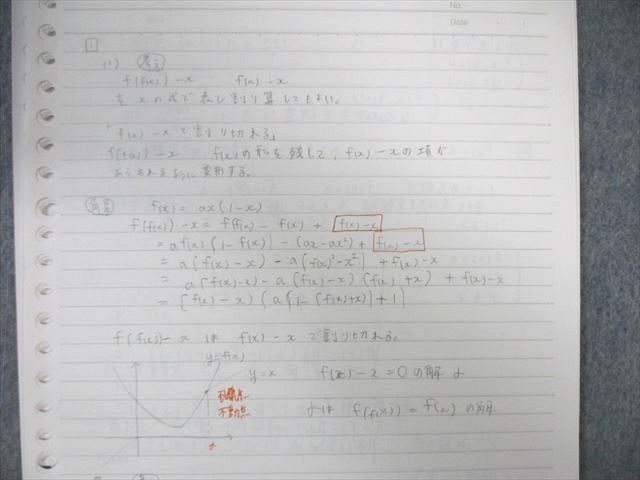 No.
Date
1
(1) 考え
f(f(x))-x f(x)-x
を x の式で表し割り算してもよい。
「f(x)-xで割り切れる」
f(f(x))-x f(x)の形を残して、f(x)-xの項が
あらわれるように変形する。
解答 f(x)= ax(1-x)
f(f(x))-x = f(f(x))-f(x)+ f(x)-x
= af(x){1-f(x)}-(ax-ax²)+ f(x)-x
= a(f(x)-x)-a{f(x)²-x²}+f(x)-x
= a(f(x)-x)-a(f(x)-x)(f(x)+x)+f(x)-x
= {f(x)-x}(a{1-(f(x)+x)}+1)
f(f(x))-x は f(x)-x で割り切れる。
y=f(x)
y=x f(x)-x=0の解 α
不動点
α
αは f(f(x))=f(x)の解